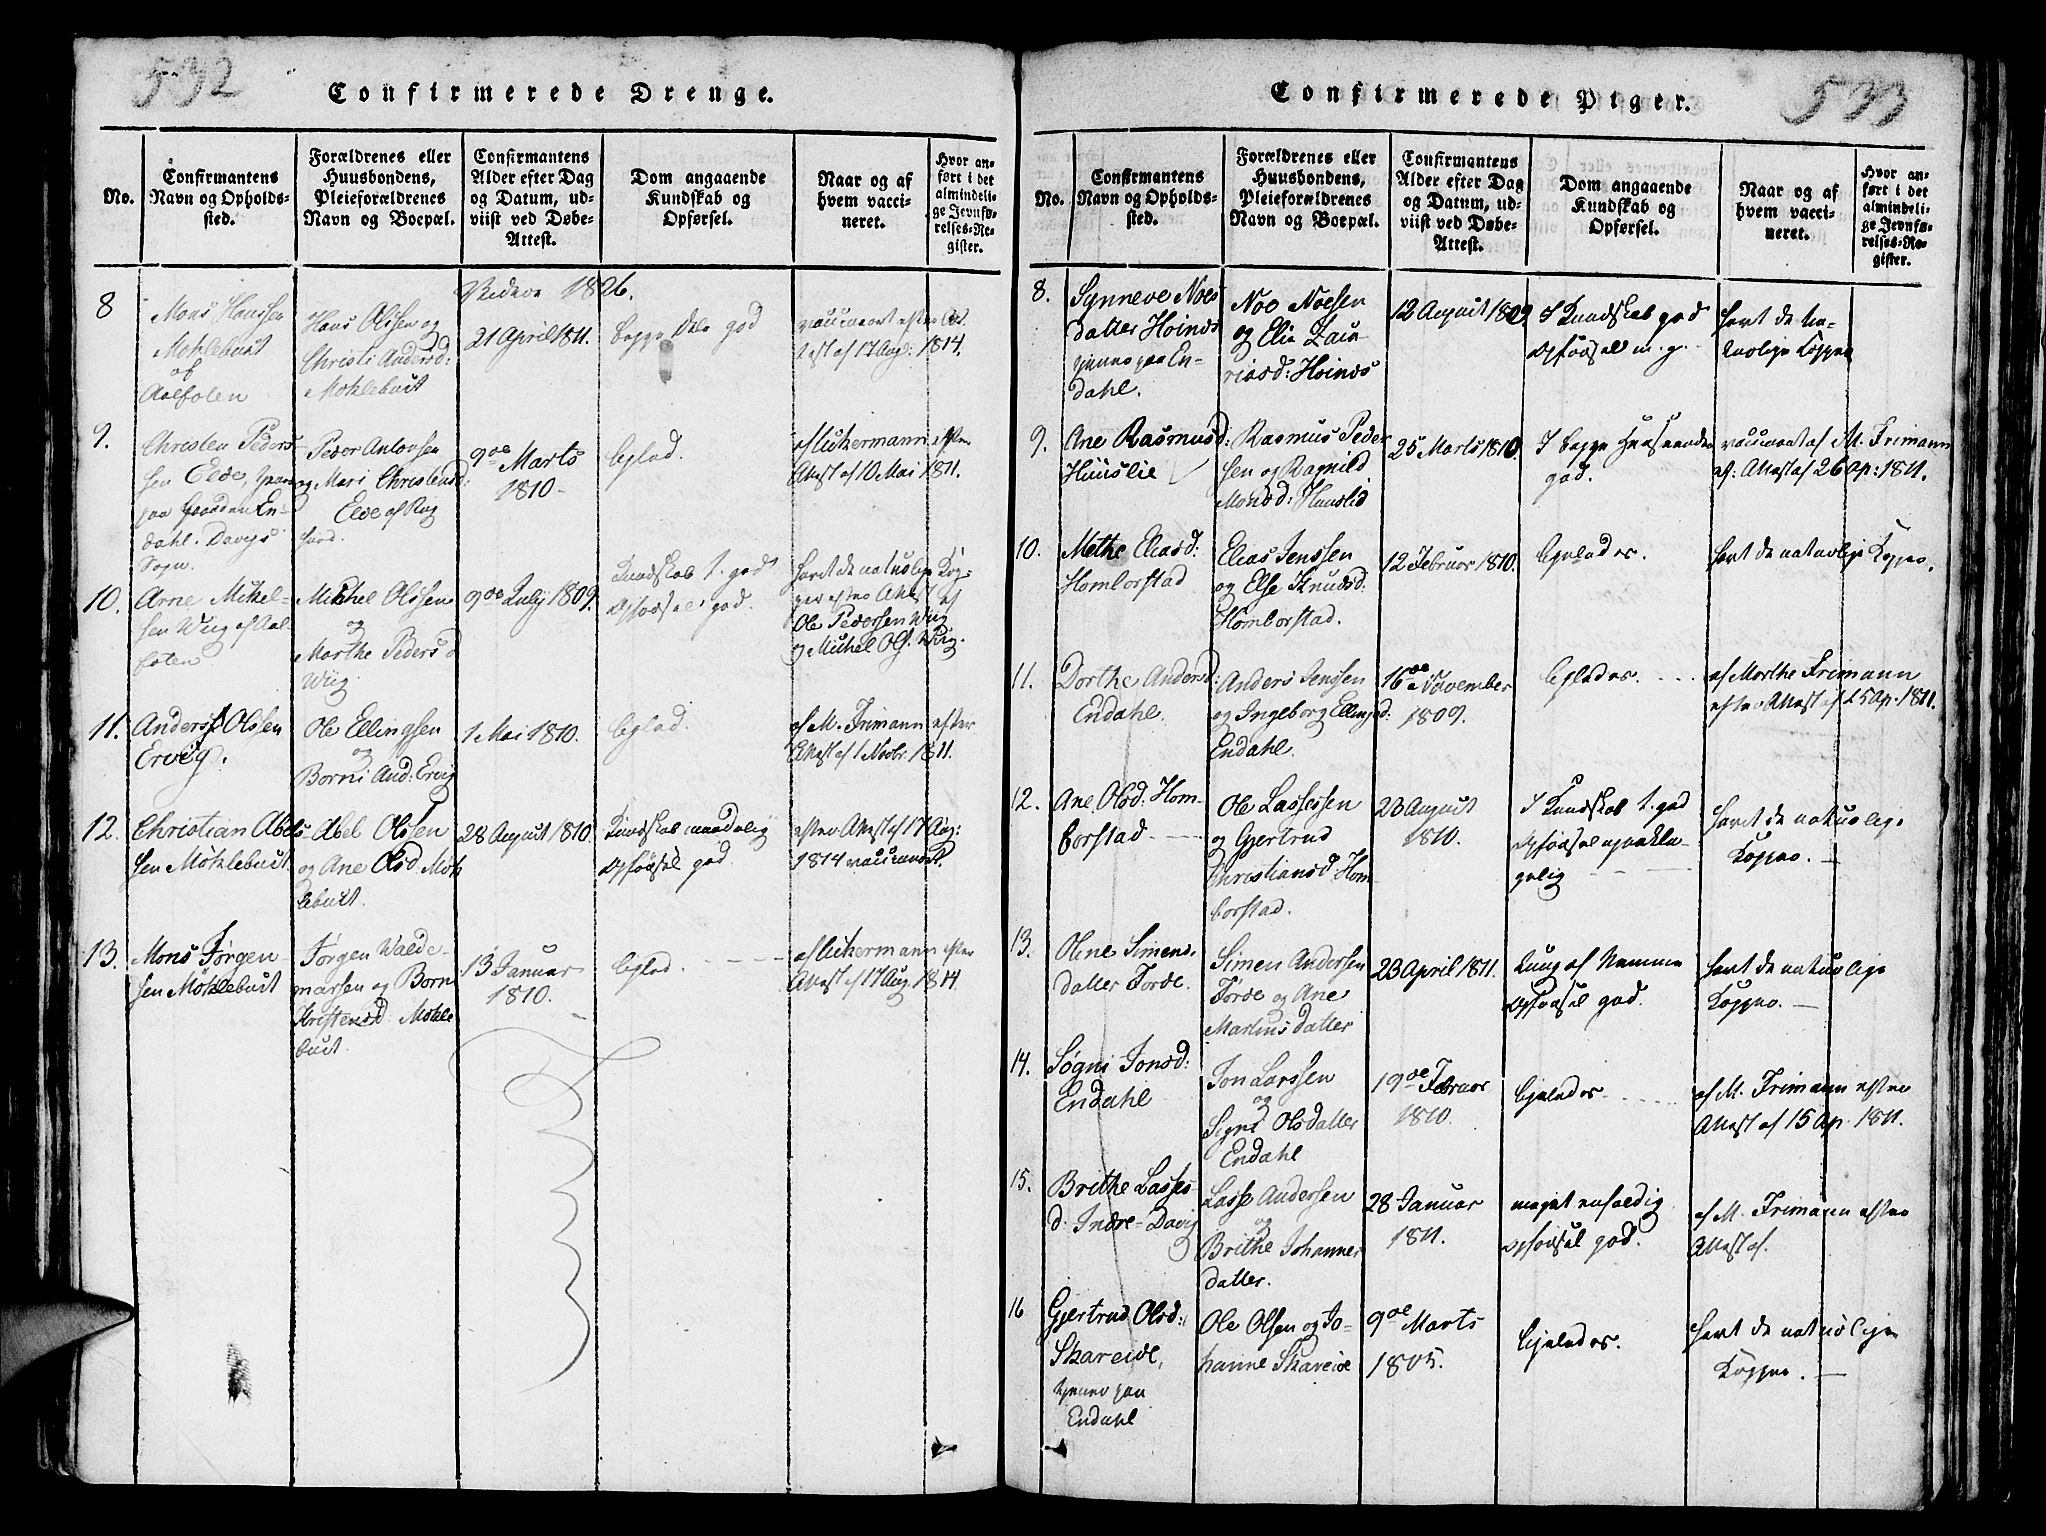 532
Confirmerede Drenge.
No.
Confirmantens
Navn og Opholds-
sted.
Forældrenes eller
Huusbondens,
Pleieforældrenes
Navn og Boepæl.
Confirmantens
Alder efter Dag
og Datum, ud-
viist ved Døbe-
Attest.
Dom angaaende
Kundskab og
Opførsel.
Naar og af
hvem vacci-
neret.
Hvor an-
ført i det
almindeli-
ge Jevnfø-
relses-Re-
gister.
1826.
8
Mons Hanssen
Mohlebust
af
Aalfoten
Hans Olssen og
Christi Andersd:
Mohlebust
21 April 1811.
begge Dele god
vaccineret efter At-
test af 17 Aug: 1814.
9.
Christen Peders-
sen Elde,
paa Gaarden En-
dahl. Davigs
Sogn.
Peder Antonsen
og Mari Christensd:
Elde af
9de Marts
1810-
ligesaa.
af Lukermann efter
Attest af 10 Mai 1811.
10.
Arne Mikel-
sen Wiig af Aal-
foten
Mikkel Olssen
og
Marthe Pedersd
Wiig
9de July 1809.
Kundskab t. god
Opførsel god.
havt de naturlige Kop-
per efter Attest af
Ole Pedersen Wiig
og Mickel Ols. Wiig.
11.
Anders Olssen
Ervig.
Ole Ellingsen
og
Borni And: Ervig
1 Mai 1810.
ligesaa.
af M. Frimann efter
Attest af 1 Novbr. 1811.
12.
Christian Abels-
sen Møklebust.
Abel Olssen
og Ane Olsd. Møk
lebust.
28 August 1810.
Kundskab maadelig
Opførsel god.
efter Attest af 17 Aug:
1814 vaccineret.
13.
Mons Jørgen-
sen Møklebust
Jørgen Walde-
marsen og Born
Kristensd. Møkle
bust.
13 Januar
1810.
ligesaa.
af Lukermann efter
Attest af 17 Aug. 1814.
533
Confirmerede Piger.
No.
Confirmantens
Navn og Opholds-
sted.
Forældrenes eller
Huusbondens,
Pleieforældrenes
Navn og Boepæl.
Confirmantens
Alder efter Dag
og Datum, ud-
viist ved Døbe-
Attest.
Dom angaaende
Kundskab og
Opførsel.
Naar og af
hvem vacci-
neret.
Hvor an-
ført i det
almindeli-
ge Jevnfø-
relses-Re-
gister.
8.
Synneve Noes
datter Hoinæs
tjener paa En-
dahl.
Noe Noesen
og Elie Lau-
ritsd: Hoinæs
12 August 1809
I Kundskab god
Opførsel m. g.
havt de na-
turlige Kopper
9.
Ane Rasmusd:
Huuslie
Rasmus Peder
sen og Ragnild
Monsd: Huuslid
25 Marts 1810.
I begge Henseender
god.
vaccineret af M. Frimann
ef. Attest af 26 Ap: 1811.
10.
Methe Eliasd:
Homborstad
Elias Jenssen
og Else Knudsd:
Homborstad.
12 Februar 1810.
ligeledes.
havt de naturlige Kopper.
11.
Dorthe Andersd:
Endahl.
Anders Jenssen
og Ingeborg Ellingsd:
Endahl.
16de November
1809.
ligeledes.
af Marthe Frimann
efter Attest af 25 Ap. 1811.
12.
Ane Olsd: Hom-
borstad
Ole Lassessen
og Gjertrud
Christiansd. Hom
borstad.
23 August
1810.
I Kundskab t. god
Opførsel upaakla-
gelig
havt de naturlige
Kopper. -
13.
Oline Simens-
datter Førde.
Simen Andersen
Førde og Ane
Martinsdatter
23 April 1811.
Kund af Nemme
Opførsel god.
havt de naturlige
Kopper. -
14.
Søgni Jonsd:
Endahl
Jon Larssen
og
Signi Olsdatter
Endahl
19de Februar
1810.
ligeledes
af M. Frimann efter
Attest af 15 Ap. 1811.
15.
Brithe Lasses-
d. Indre-Davig
Lasse Andersen
og
Brithe Johannes
datter.
28 Januar
1811.
meget enfoldig
Opførsel god.
af M. Frimann efter
Attest af.
16
Gjertrud Olsd:
Skareide,
tjener paa
Endahl
Ole Olsen og Jo-
hanne Skareide
9de Marts
1805.
ligeledes.
havt de naturlige
Kopper. -